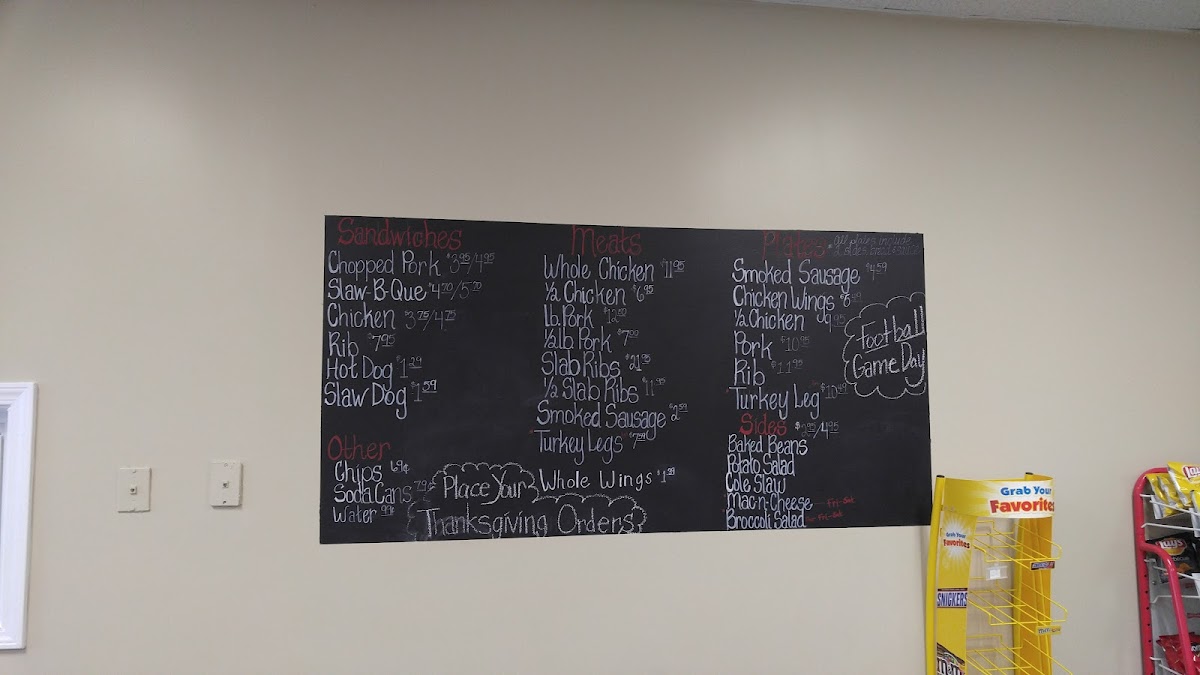 Sandwiches
Chopped Pork $3.95/4.95
Slaw-B-Que $4.70/5.70
Chicken $3.75/4.75
Rib $7.95
Hot Dog $1.29
Slaw Dog $1.59
Other
Chips 69¢
Soda Cans
Water 99¢
Meats
Whole Chicken $11.95
1/2 Chicken $6.95
lb. Pork
1/2 lb. Pork
Slab Ribs $21.95
1/2 Slab Ribs $11.95
Smoked Sausage $2.59
Turkey Legs
Whole Wings $1.29
Place Your
Thanksgiving Orders
Plates all plates include
Smoked Sausage $4.59
Chicken Wings
1/2 Chicken
Pork $10.95
Rib $11.95
Turkey Leg
Sides
Baked Beans
Potato Salad
Cole Slaw
Mac-n-Cheese Fri-Sat
Broccoli Salad Fri-Sat
Football
Game Day
Grab Your
Favorites
Grab Your
Favorites
SNICKERS
Lay's